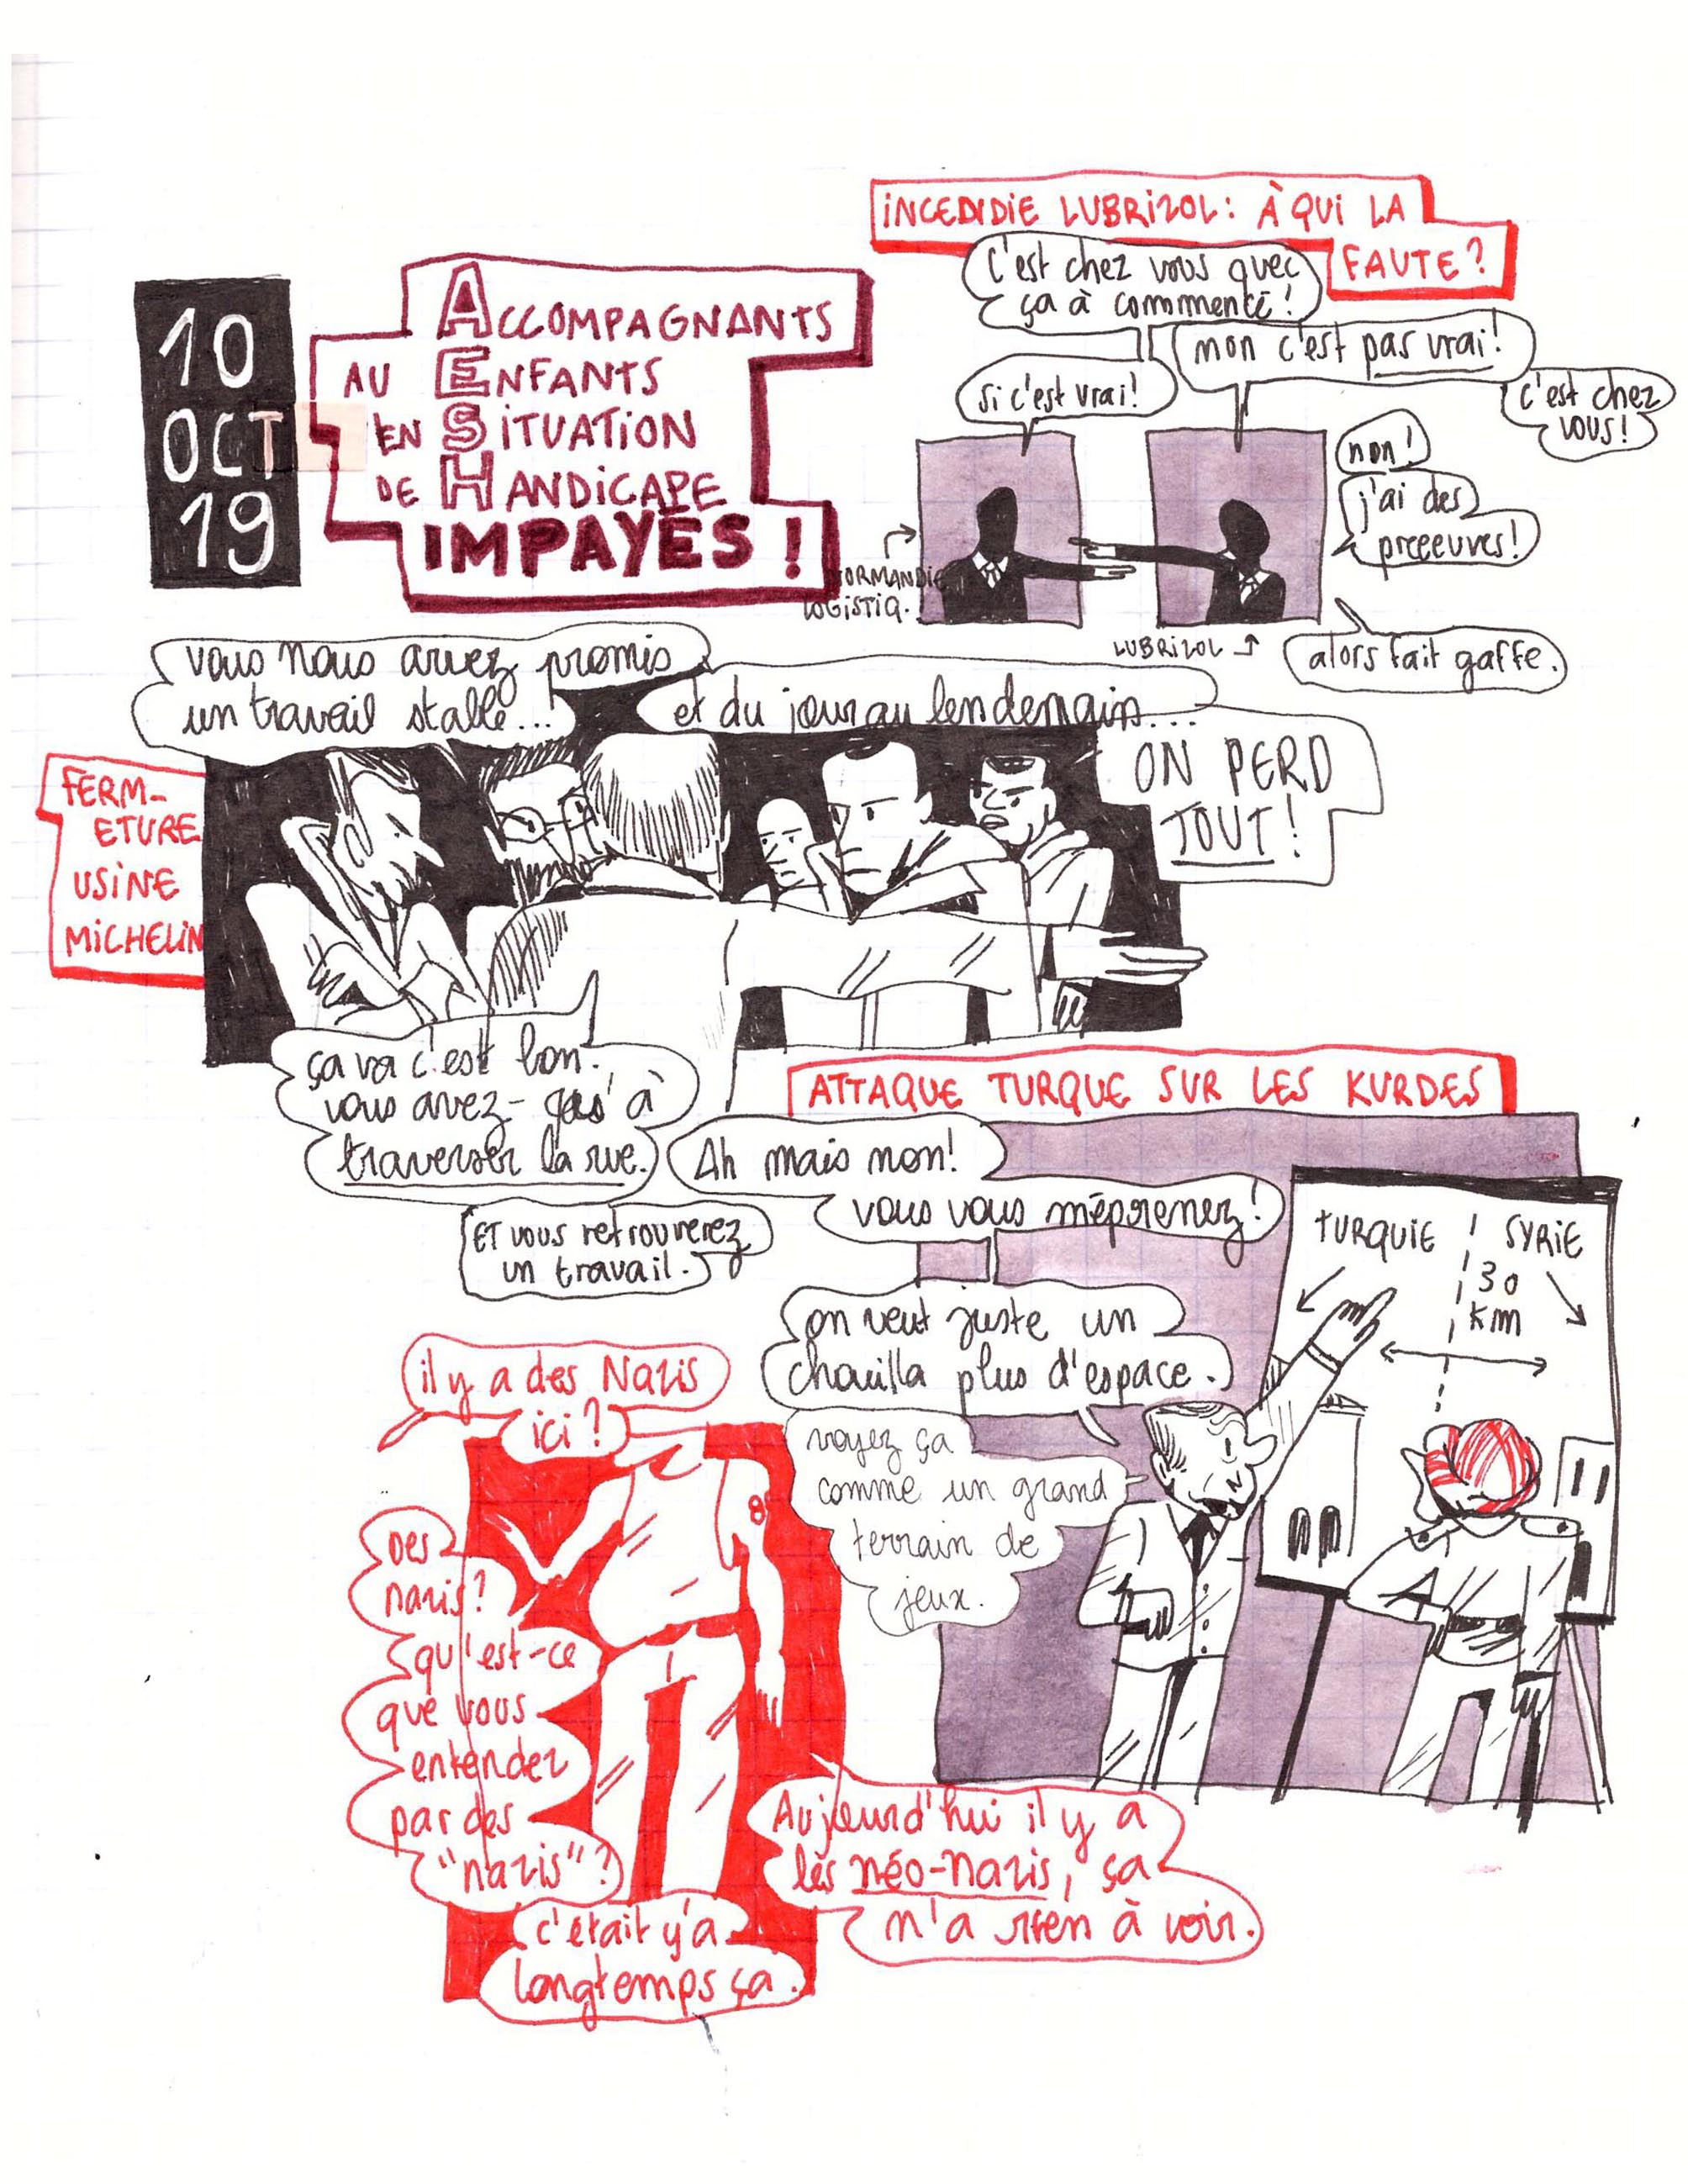 10
OCT
19
ACCOMPAGNANTS
AU ENFANTS
EN SITUATION
DE HANDICAPE
IMPAYÉS !
INCEDIDIE LUBRIZOL : À QUI LA
FAUTE ?
C'est chez vous quec
ça à commencé !
non c'est pas vrai !
si c'est vrai !
C'est chez
vous !
non !
j'ai des
preeeuves !
NORMANDIE
LOGISTIQ.
LUBRIZOL
alors fait gaffe.
vous nous avez promis
un travail stable...
et du jour au lendemain...
ON PERD
TOUT !
FERM-
ETURE
USINE
MICHELIN
ça va c'est bon.
vous avez-qu'à
traverser la rue.
ET vous retrouverez
un travail.
ATTAQUE TURQUE SUR LES KURDES
Ah mais non!
vous vous méprenez!
on veut juste un
chouilla plus d'espace.
voyez ça
comme un grand
terrain de
jeux.
TURQUIE
SYRIE
30
Km
il y a des Nazis
ici ?
Des
nazis ?
qu'est-ce
que vous
entendez
par des
"nazis" ?
8
c'était y'a
longtemps ça.
Aujourd'hui il y a
les néo-Nazis, ça
n'a rien à voir.